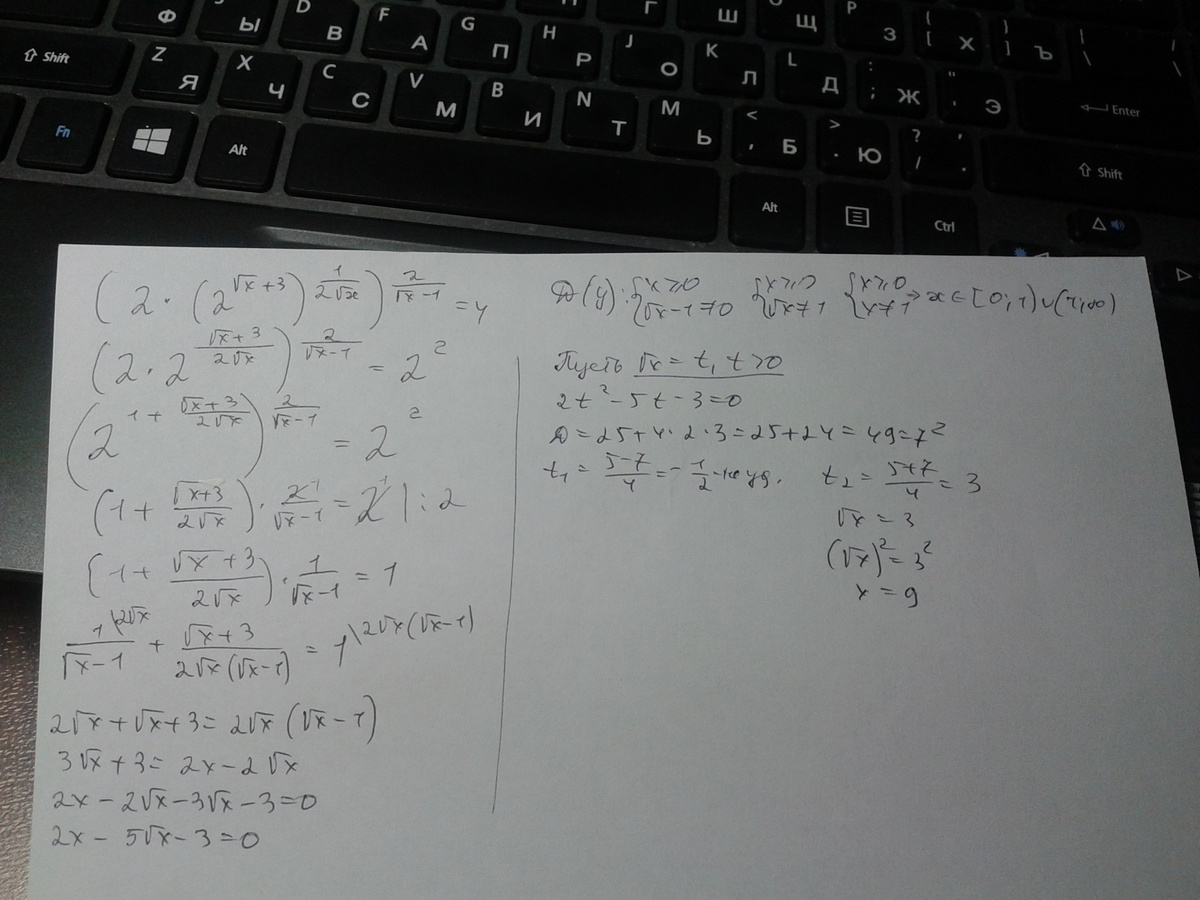 Ф Ы D В F А G П Н Р Г Ш Щ Р З { [ Х } ] Ъ | \
⇧ Shift Z Я X Ч C С V М B И J О K Л L Д : ; Ж " ' Э Enter
Fn Alt N Т M Ь < , Б > . Ю ? / , . ⇧ Shift
Alt Ctrl
(2 · (2^(√x + 3))^(1/(2√x)))^(2/(√x−1)) = 4
(2 · 2^((√x+3)/(2√x)))^(2/(√x−1)) = 2^2
(2^(1 + (√x+3)/(2√x)))^(2/(√x−1)) = 2^2
(1 + (√x+3)/(2√x)) · 2^1/(√x−1) = 2^1 | : 2
(1 + (√x+3)/(2√x)) · 1/(√x−1) = 1
1\2√x/(√x−1) + (√x+3)/(2√x(√x−1)) = 1\2√x(√x−1)
2√x + √x + 3 = 2√x (√x − 1)
3√x + 3 = 2x − 2√x
2x − 2√x − 3√x − 3 = 0
2x − 5√x − 3 = 0
D(y): {x ≥ 0 {x ≥ 0 {x ≥ 0 ⇒ x ∈ [0; 1) ∪ (1; ∞)
{√x − 1 ≠ 0 {√x ≠ 1 {x ≠ 1
Пусть √x = t, t > 0
2t² − 5t − 3 = 0
D = 25 + 4 · 2 · 3 = 25 + 24 = 49 = 7²
t₁ = (5−7)/4 = −1/2 – не уд. t₂ = (5+7)/4 = 3
√x = 3
(√x)² = 3²
x = 9